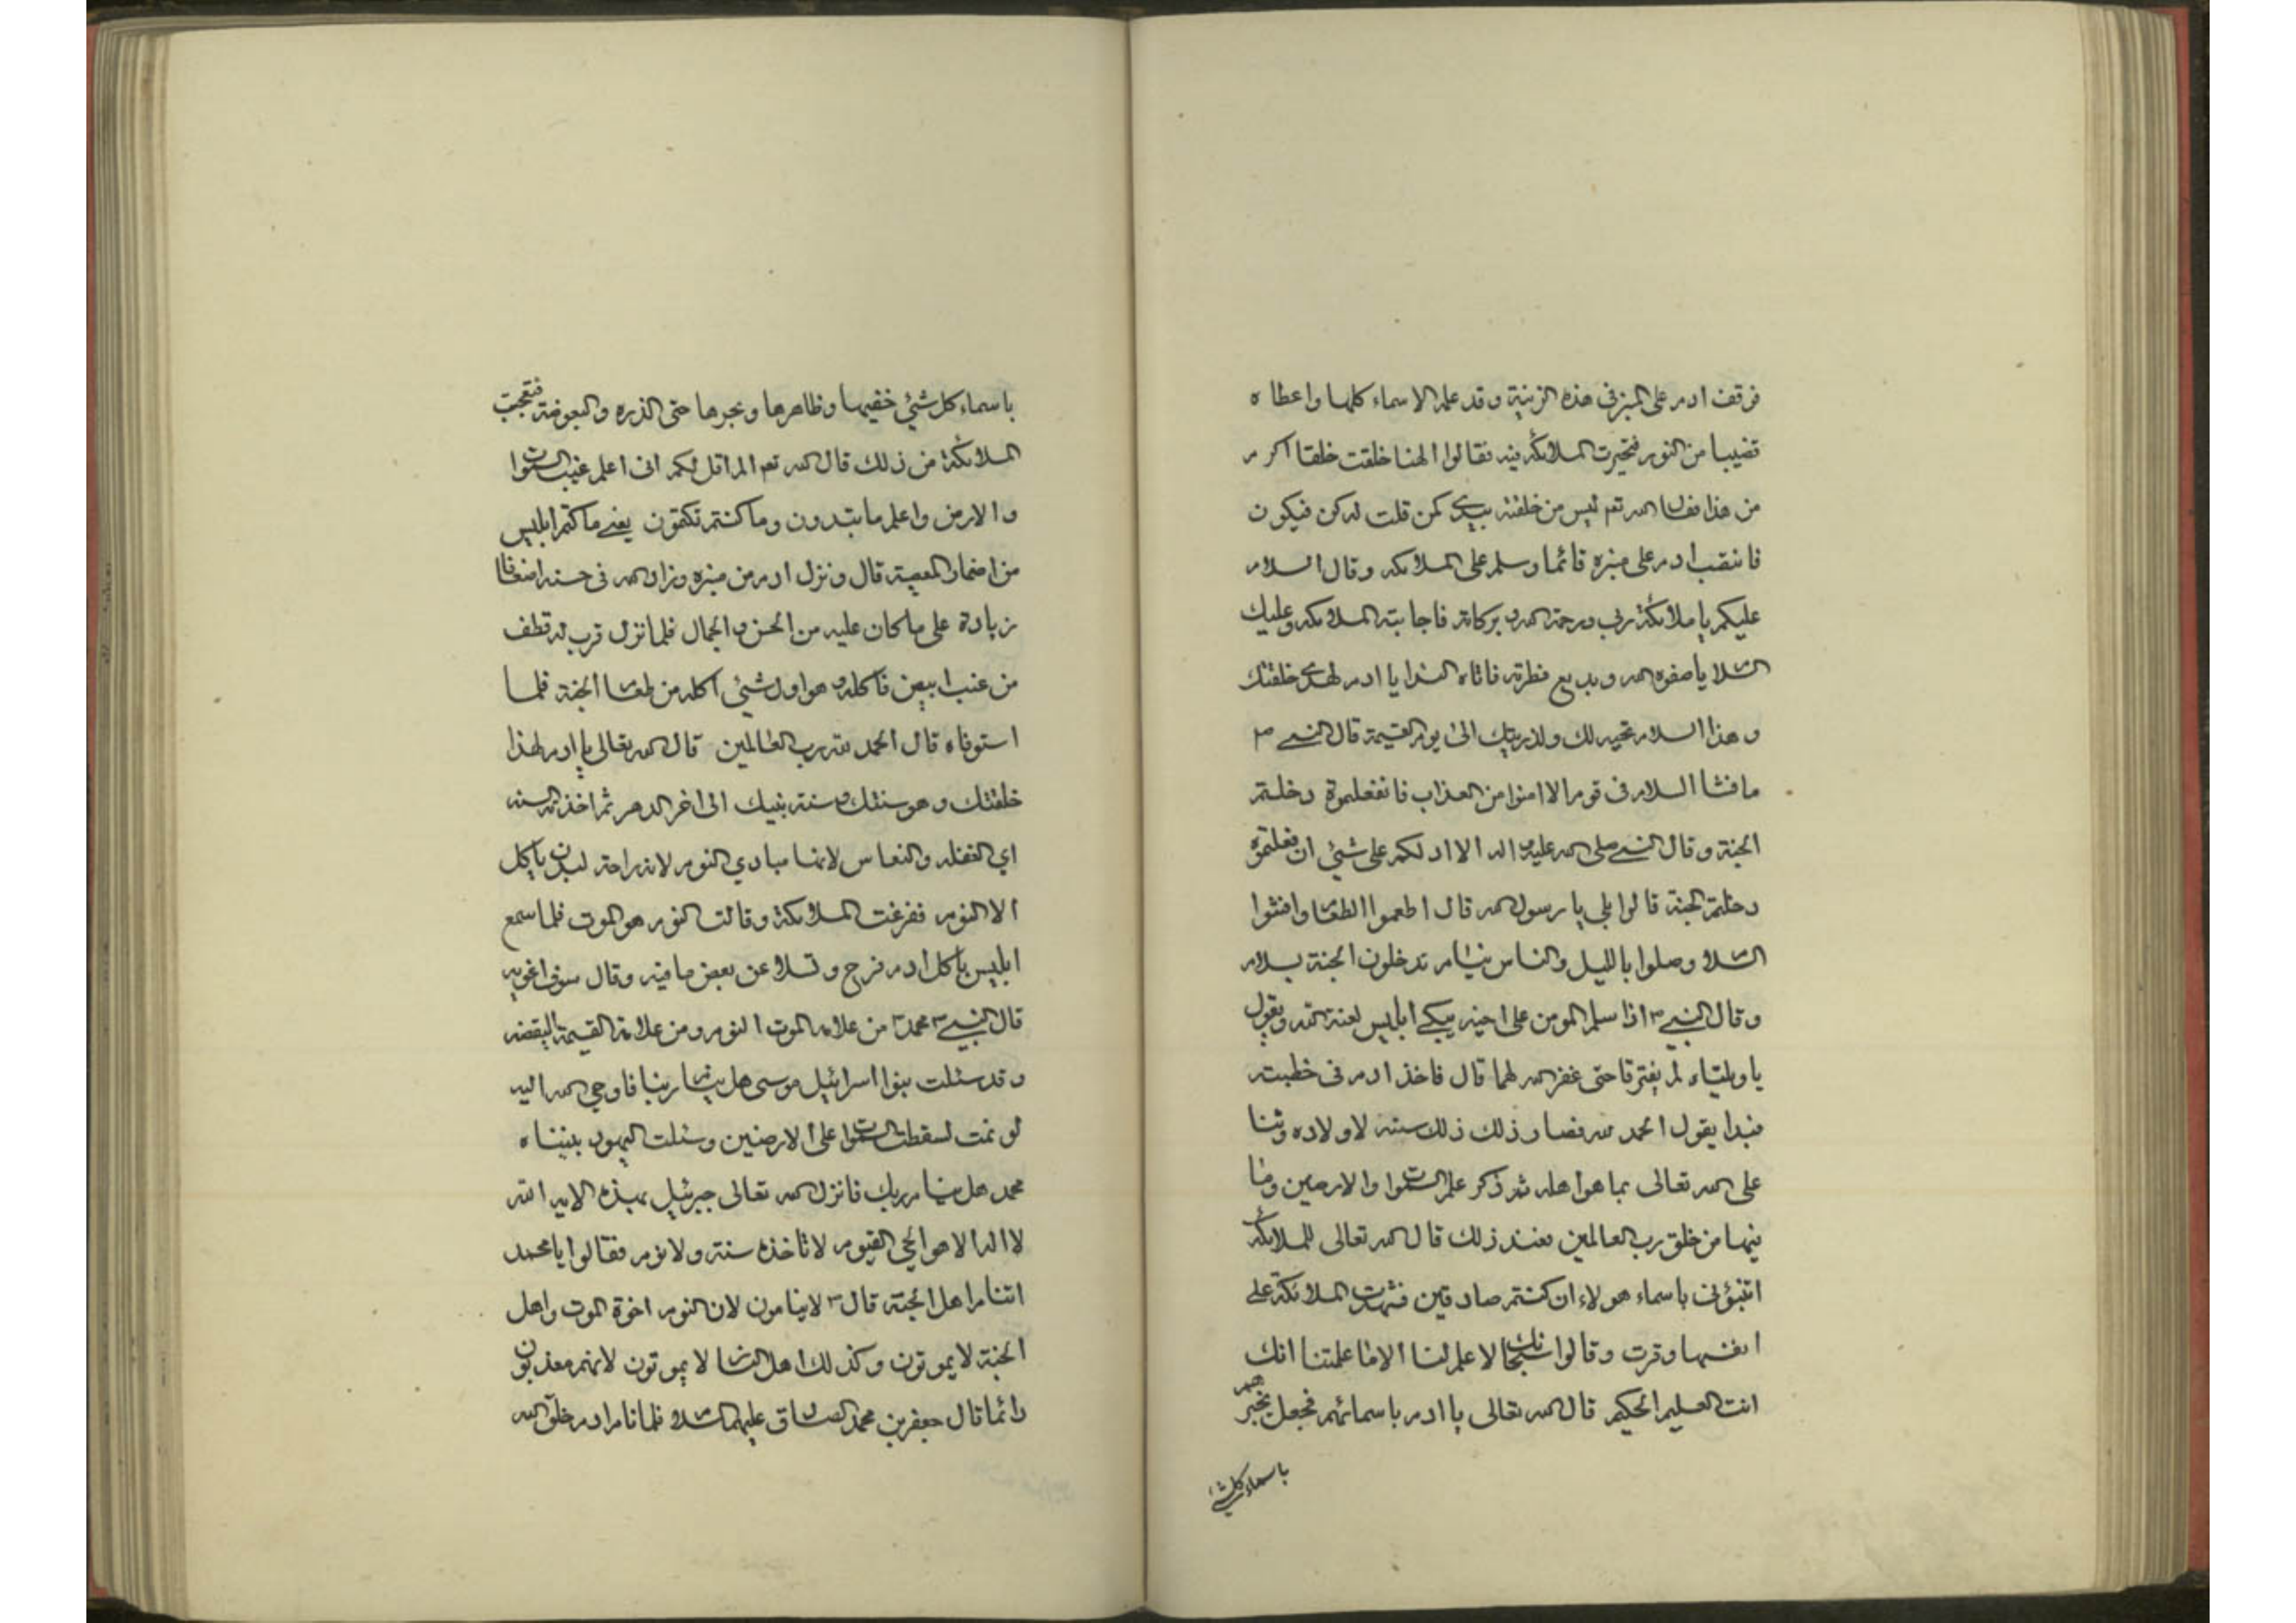 فوقف ادم على المنبر في هذه الزينة وقد علم الاسماء كلها واعطاه
قضيبا من النور فتحيرت الملائكة فيه فقالوا الهنا خلقت خلقا اكرم
من هذا فقال الله تعم ليس من خلقته بيدي كمن قلت له كن فيكون
فانتقب ادم على منبره قائما وسلم على الملائكه وقال السلام
عليكم يا ملائكة ربي ورحمة الله وبركاته فاجابته الملائكه وعليك
السلام يا صفوه الله وبديع فطرته فاتاه الندا يا ادم لهذا خلقتك
وهذا السلام تحيه لك ولذريتك الى يوم القيمة قال النبي ص
ما فشا السلام في قوم الا امنوا من العذاب فان فعلتموه دخلتم
الجنة وقال النبي صلى الله عليه واله الا ادلكم على شئ ان فعلتموه
دخلتم الجنة قالوا بلى يا رسول الله قال اطعموا الطعام وافشوا
السلام وصلوا بالليل والناس نيام تدخلون الجنة بسلام
وقال النبي ص اذا سلم المومن على اخيه يبكي ابليس لعنة الله ويقول
يا ويلتاه لم يفترقا حتى غفر الله لهما قال فاخذ ادم في خطبته
فبدا يقول الحمد لله فصار ذلك ذلك سنته لاولاده وثنا
على الله تعالى بما هو اهله ثم ذكر علم السموات والارضين وما
فيها من خلق رب العالمين فعند ذلك قال الله تعالى للملائكة
انبؤني باسماء هولاء ان كنتم صادقين فشهدت الملائكة على
انفسها وقرت وقالوا سبحانك لا علم لنا الا ما علمتنا انك
انت العليم الحكيم قال الله تعالى يا ادم باسمائهم فجعل يخبرهم
باسماء كل شئ
باسماء كل شئ خفيها وظاهرها وبحرها حتى الذره والبعوضة فتعجبت
الملائكة من ذلك قال الله تعم الم اقل لكم اني اعلم غيب السموات
والارض واعلم ما تبدون وما كنتم تكتمون يعني ما كتم ابليس
من اضمار المعصية قال ونزل ادم من منبره وزاد الله في حسنه اضعافا
زيادة على ما كان عليه من الحسن والجمال فلما نزل قرب له قطف
من عنب ابيض فاكله وهو اول شئ اكله من طعام الجنة فلما
استوفاه قال الحمد لله رب العالمين قال الله تعالى يا ادم لهذا
خلقتك وهو سنتك وسنة بنيك الى اخر الدهر ثم اخذته السنه
اي الغفله والنعاس لانها مبادي النوم لانه راحة لبدن ياكل
الا النوم ففزعت الملائكة وقالت النوم هو الموت فلما سمع
ابليس باكل ادم فرح وتسلا عن بعض ما فيه وقال سوف اغويه
قال النبي محمد ص من علامه الموت النوم ومن علامة القيمة اليقضه
وقد سئلت بنوا اسرائيل موسى هل ينام ربنا فاوحي الله اليه
لو نمت لسقطت السموات على الارضين وسئلت اليهود نبيناه
محمد هل ينام ربك فانزل الله تعالى جبرئيل بهذه الايه الله
لا اله الا هو الحي القيوم لا تاخذه سنة ولا نوم فقالوا يا محمد
اتنام اهل الجنة قال ص لا ينامون لان النوم اخوة الموت واهل
الجنة لا يموتون وكذلك اهل النار لا يموتون لانهم معذبون
دائما قال جعفر بن محمد الصادق عليهما السلام فلما نام ادم خلق الله